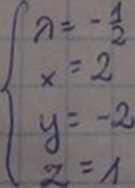 λ = -1/2
x = 2
y = -2
z = 1